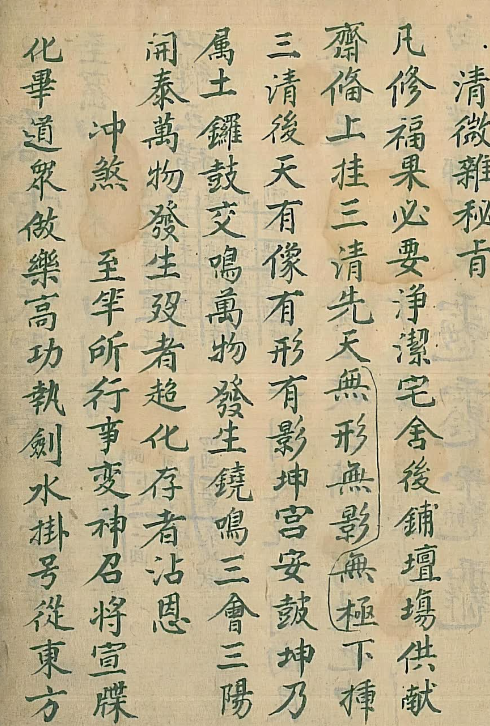 清微雜秘旨
凡修福果必要淨潔宅舍後鋪壇塲供献
齋偹上挂三清先天無形無影無極下揷
三清後天有像有形有影坤宫安鼓坤乃
属土鑼鼓交鳴萬物發生鐃鳴三會三陽
開泰萬物發生殁者超化存者沾恩
冲煞 至罕所行事変神召将宣牒
化畢道衆做樂高功執劍水掛号從東方